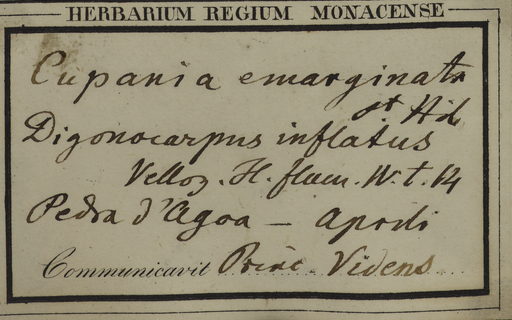 HERBARIUM REGIUM MONACENSE
Cupania emarginata
St Hil
Digonocarpus inflatus
Velloz. H. flum. IV. t. 14
Pedra d'Agoa —
Communicavit Princ. Videns